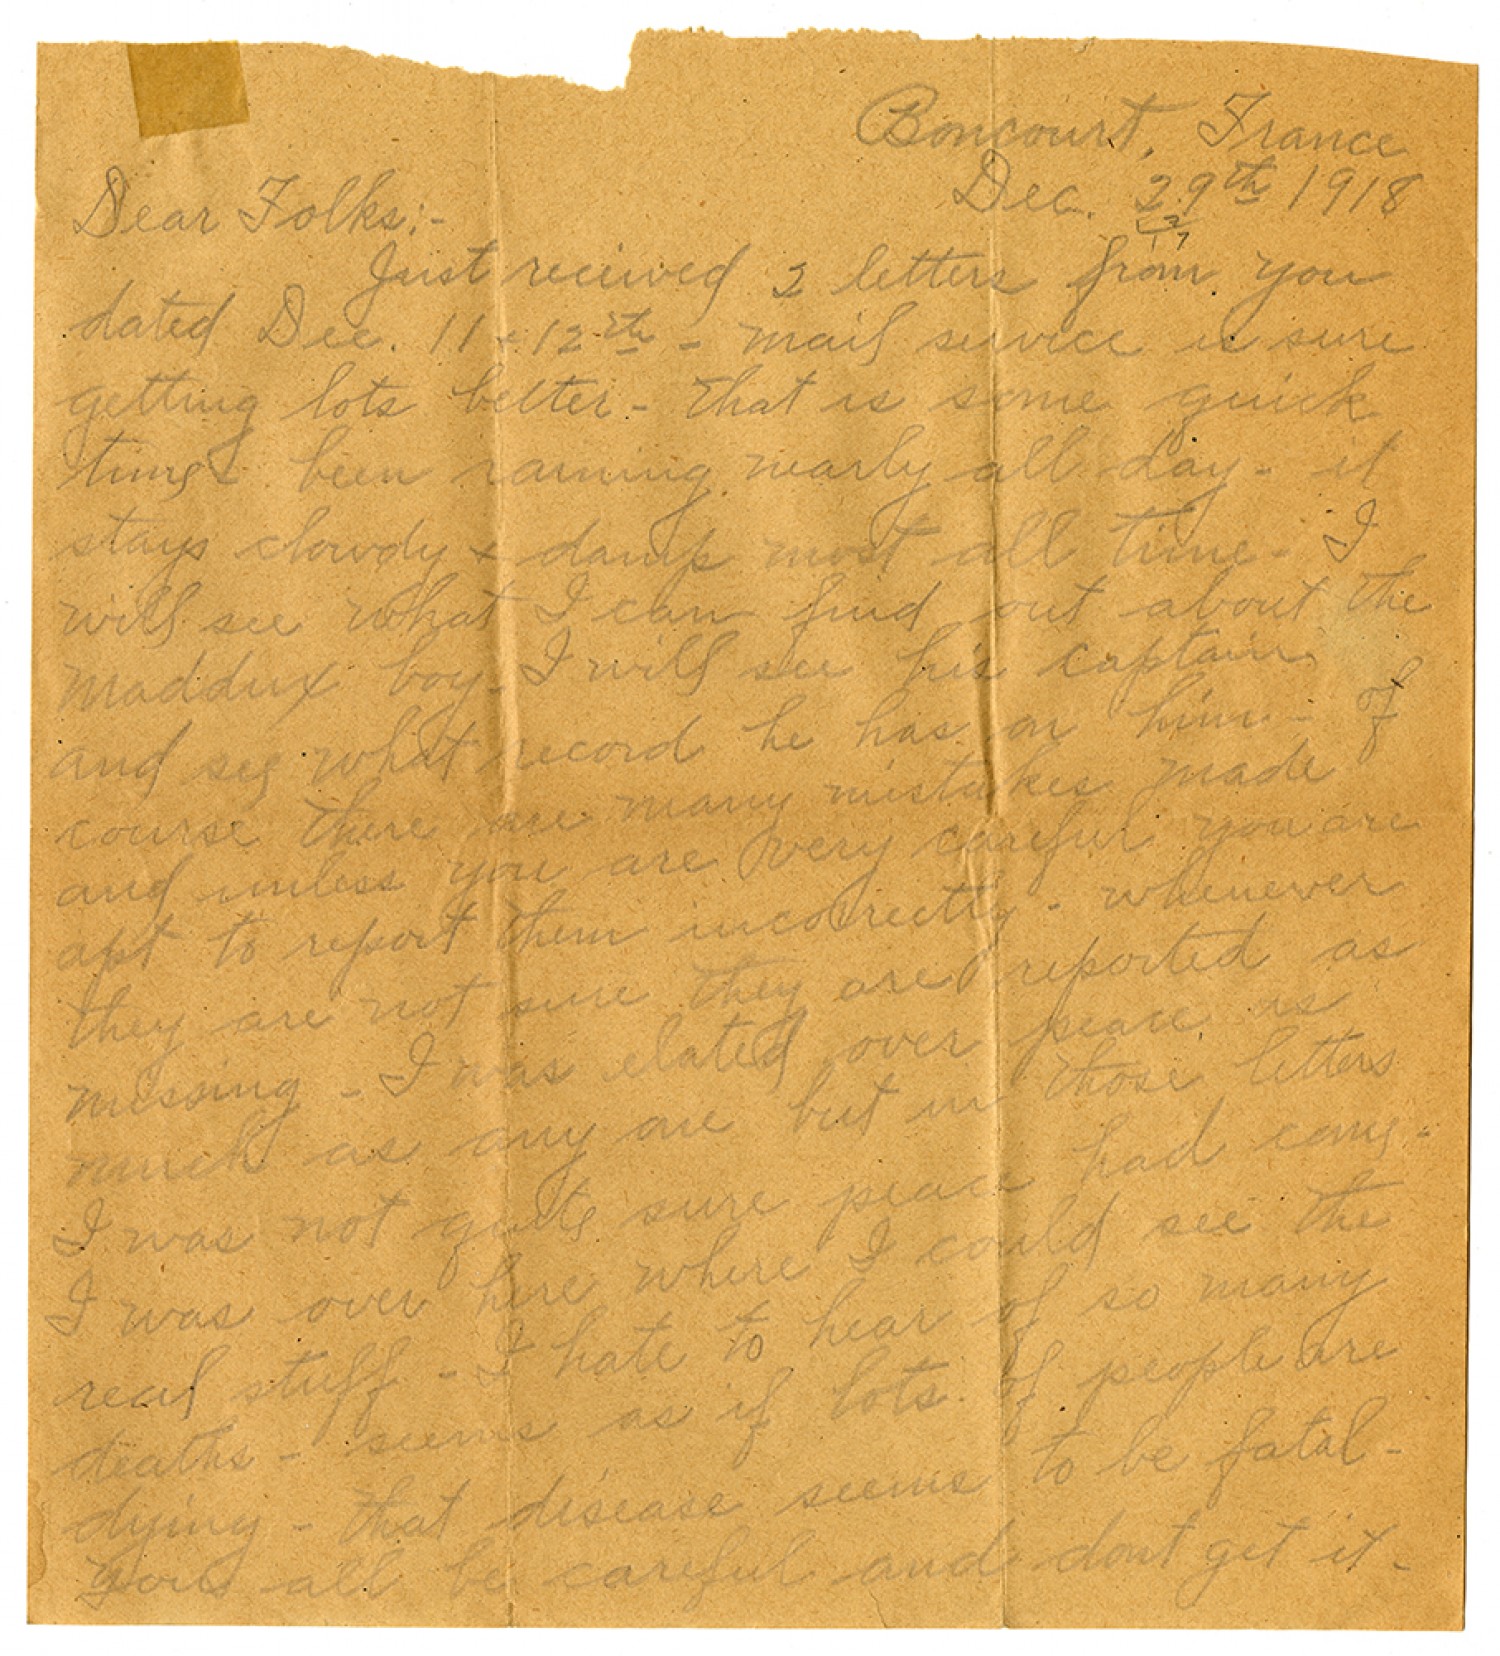 Boncourt, France
Dec. 29th 1918
17
Dear Folks:-
Just received 2 letters from you
dated Dec. 11 + 12th - mail service is sure
getting lots better - that is some quick
time & been raining nearly all day - it
stays clowdy + damp most all time - I
will see what I can find out about the
Maddux boy - I will see his captain
and see what record he has on him - of
course there are many mistakes made
and unless you are very careful you are
apt to report them incorrectly - whenever
they are not sure they are reported as
missing - I was elated over peace as
much as any one but in those letters
I was not quite sure peace had come -
I was over here where I could see the
real stuff - I hate to hear of so many
deaths - seems as if lots of people are
dying - that disease seems to be fatal -
you all be careful and dont get it -